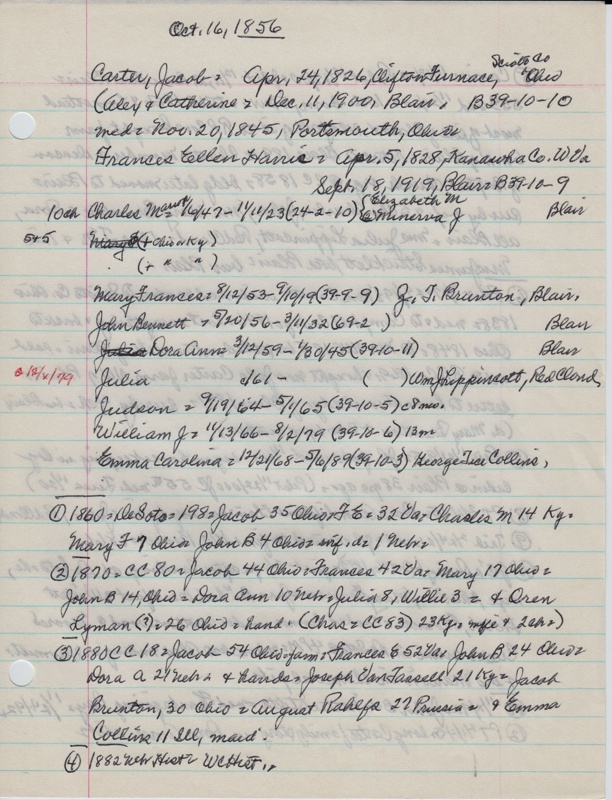 Oct. 16, 1856
Scioto Co
Carter, Jacob = Apr. 24, 1826, Clifton Furnace, Ohio
(Aley & Catherine = Dec. 11, 1900, Blair, B39-10-10
med = Nov. 20, 1845, Portsmouth, Ohio =
Frances Ellen Harris = Apr. 5, 1828, Kanawha Co. W Va
Sept. 18, 1919, Blair = B39-10-9
10th Charles M = 16/47 - 11/11/23 (24-2-10) { Elizabeth M
& Minerva J Blair
5+5 Mary F (+ Ohio or Ky)
(+ " " )
Mary Frances = 8/12/53 - 9/10/19 (39-9-9) J. T. Brunton, Blair,
John Bennett = 5/20/56 - 3/11/32 (69-2 ) Blair
Julia Dora Ann = 3/12/59 - 1/30/45 (39-10-11) Blair
Julia c/61 - ( ) Wm J Lippincott, Red Cloud,
@ 12/x/79
Judson = 9/19/64 - 5/1/65 (39-10-5) c 8 mo.
William J = 11/13/66 - 8/2/79 (39-10-6) 12m
Emma Carolina = 12/21/68 - 5/6/89 (39-10-3) George Tice Collins,
① 1860 = DeSoto = 198 = Jacob 35 Ohio = F E = 32 Va = Charles M 14 Ky =
Mary F 7 Ohio = John B 4 Ohio = inf. d = 1 Nebr =
② 1870 = CC 80 = Jacob 44 Ohio = Frances 42 Va = Mary 17 Ohio =
John B 14, Ohio = Dora Ann 10 Nebr = Julia 8, Willie 3 = & Oren
Lyman (?) = 26 Ohio = hand. (Chas = CC 83) 23 Ky = wife & 2 chr =)
③ 1880 CC 18 = Jacob 54 Ohio = farm = Frances E 52 Va = John B 24 Ohio =
Dora A 21 Nebr = 4 hands = Joseph Van Tassell 21 Ky = Jacob
Brunton, 30 Ohio = August Rahlfs 27 Prussia = & Emma
Collins 11 Ill, maid
④ 1882 Nebr Hist = WC Hist.,